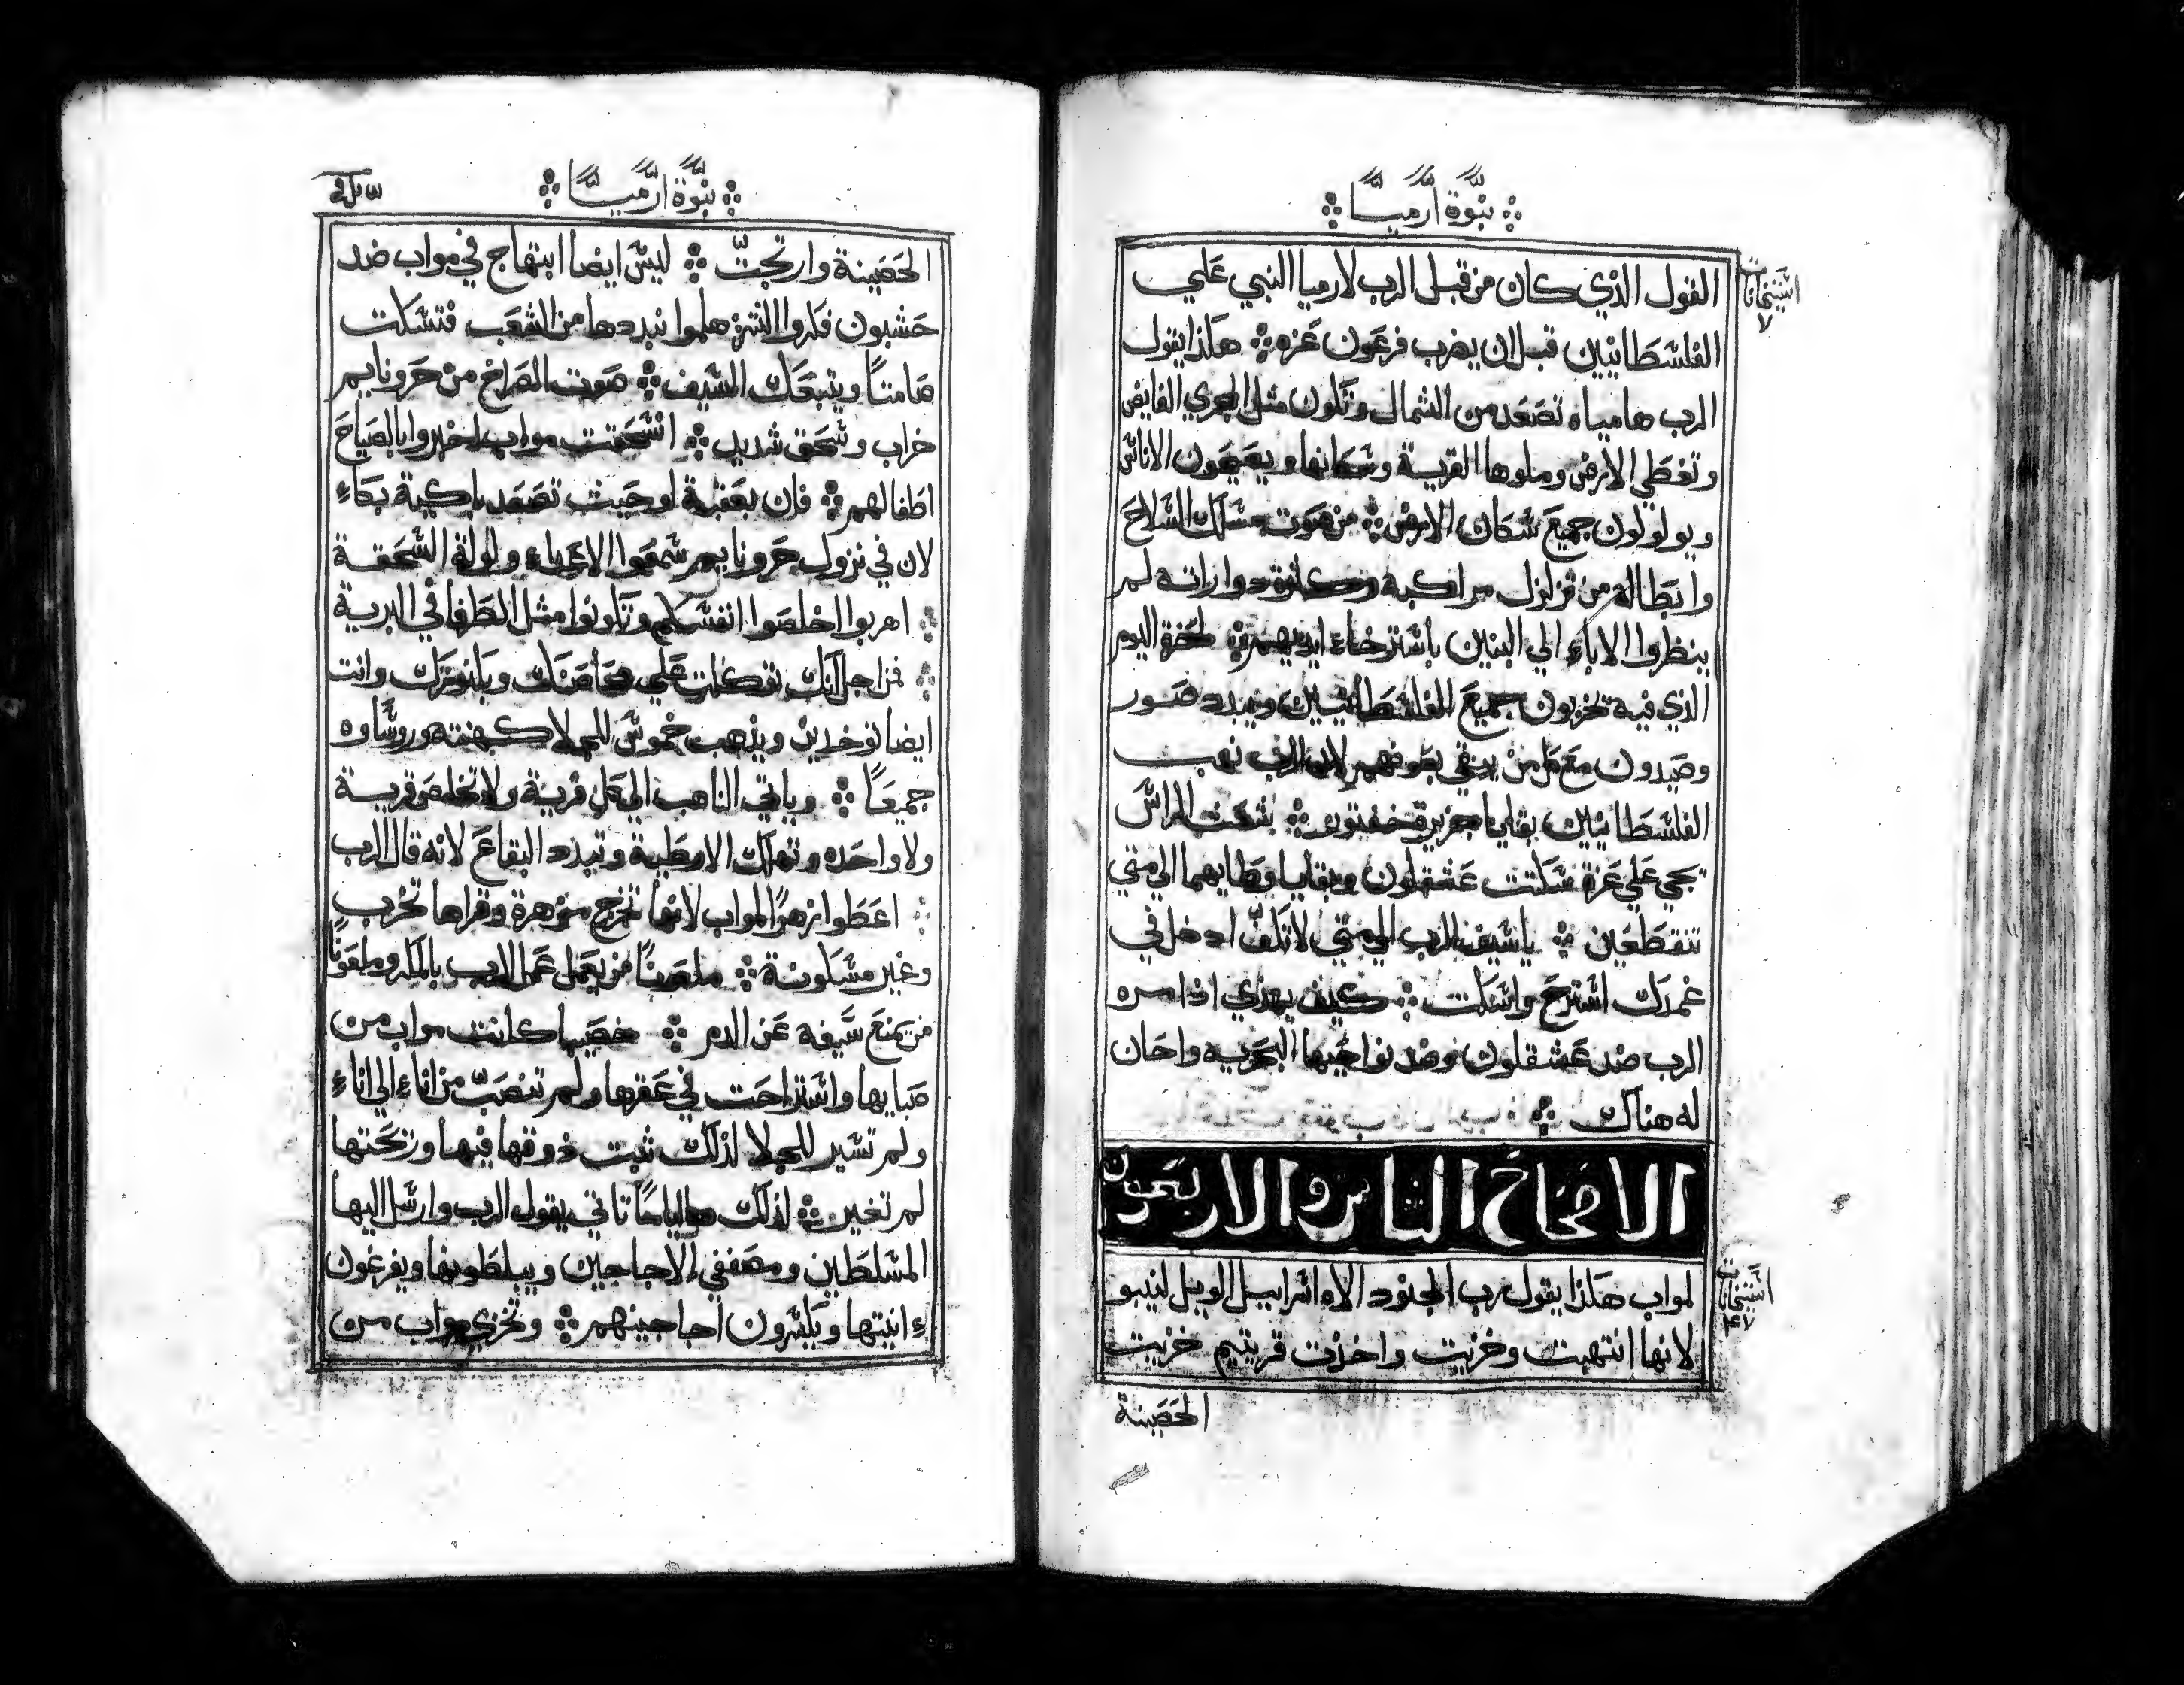 نبوة ارميا
القول الذي كان من قبل الرب لارميا النبي علي
الفلسطانيين قبل ان يضرب فرعون غزه هكذا يقول
الرب ها مياه تصعد من الشمال وتكون مثل المجري الفايض
وتغطي الارض وملوها القرية وسكانها ويصيحون الاناس
ويولولون جميع سكان الارض من صوت مسلك السلاح
وابطاله من تزلزل مراكبه وكثرة دواراته لم
ينظروا الاباء الي البنين باسترخاء ايديهم لحضرة اليوم
الذي فيه تخربون جميع الفلسطانيين ويبدد صور
وصيدون مع كل من بقي بعوفهم لان الرب نهب
الفلسطانيين بقايا جزيرة
تجي علي غزة سكتت عشقلون وبقايا وطايهما الي متي
تنقطعين يا سيف الرب الي متي لا تكف ادخل في
غمدك استرح واسكت كيف يهدي اذ امره
الرب ضد عشقلون وضد نواحيها البحرية واحان
له هناك
الاصحاح الثامن والاربعون
لمواب هكذا يقول رب الجنود الاه اسراييل الويل لنيبو
لانها انتهبت وخزيت واخذت قريتيم خزيت
الحصينة
نبوة ارميا
الحصينة وارتجت ليس ايضا ابتهاج في مواب ضد
حشبون فكروا الشر هلموا نبددها من الشعب فتسكت
صامتا ويتبعك السيف صوت الصراخ من حرونايم
خراب وسحق شديد انسحقت مواب اخبروا بالصياح
اطفالهم فان بعقبة لوحيث تصعد باكية بكاء
لان في نزول حرونايم سمعوا الاعداء ولولة السحقة
اهربوا اخلصوا انفسكم وتكونوا مثل الطرفا في البرية
فمن اجل انك توكلت علي محاصنك وبكنوزك وانت
ايضا توخدين ويذهب خموش للجلا كهنته وروساوه
جميعا وياتي الناهب الي كل قرية ولا تخلص قرية
ولا واحده وتهلك الاوطية وتبدد البقاع لانه قال الرب
اعطوا زهرا لمواب لانها تخرج مزهرة وقراها تخرب
وغير مسكونة ملعونا من يعمل عمل الرب بالمكر وملعونا
من يمنع سيفه عن الدم خصيبا كانت مواب من
صبايها واستراحت في عقرها ولم تنصب من اناء الي اناء
ولم تسير للجلا لذلك ثبت ذوقها فيها ورتحتها
لم تغير لذلك ها اياما تاتي يقول الرب وارسل اليها
المسلطين ومصففي الاجاجين ويبلطونها ويفرغون
ءانيتها ويكسرون اجاجينهم وتخزي مواب من